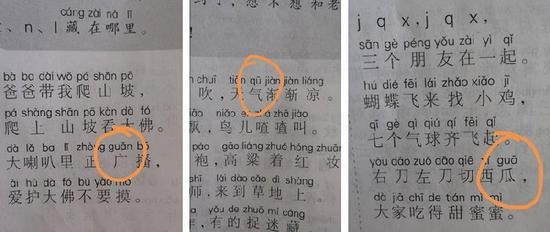 cáng zài nǎ lǐ
、n、l 藏 在 哪 里。
bà ba dài wǒ pá shān pō
爸 爸 带 我 爬 山 坡，
pá shàng shān pō kàn dà fó
爬 上 山 坡 看 大 佛。
dà lǎ ba lǐ zhèng guǎn bō
大 喇 叭 里 正 广 播，
ài hù dà fó bú yào mō
爱 护 大 佛 不 要 摸。
想 不 想 和 老
chuī tiān qū jiàn jiàn liáng
吹，天 气 渐 渐 凉。
niǎo ér zhā zhā jiào
飘，鸟 儿 喳 喳 叫。
páo gāo liáng zhuó hóng zhuāng
袍，高 粱 着 红 妆
shī lái dào cǎo dì shàng
师，来 到 草 地 上。
yǒu de zhuō mí cáng
有 的 捉 迷 藏
j q x，j q x，
sān gè péng yǒu zài yì qǐ
三 个 朋 友 在 一 起。
hú dié fēi lái zhǎo xiǎo jī
蝴 蝶 飞 来 找 小 鸡，
qī gè qì qiú qí fēi qǐ
七 个 气 球 齐 飞 起。
yòu dāo zuǒ dāo qiē xī guā
右 刀 左 刀 切 西 瓜，
dà jiā chī de tián mì mì
大 家 吃 得 甜 蜜 蜜。